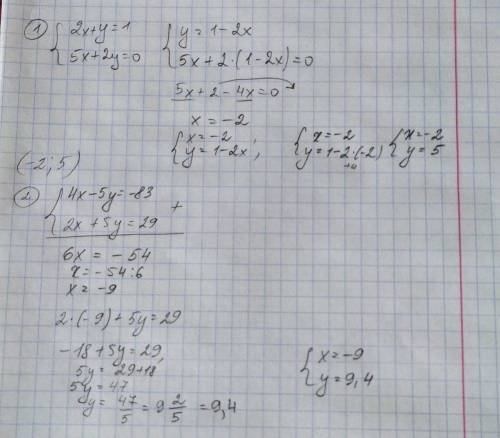 ① { 2x+y=1
5x+2y=0
{ y=1-2x
5x+2·(1-2x)=0
5x+2-4x=0
x=-2
{ x=-2
y=1-2x ;
{ x=-2
y=1-2·(-2)
+4
{ x=-2
y=5
(-2;5)
② { 4x-5y=-83
2x+5y=29
+
6x = -54
x=-54:6
x=-9
2·(-9)+5y=29
-18+5y=29,
5y=29+18
5y=47
y=47/5=9 2/5 =9,4
{ x=-9
y=9,4